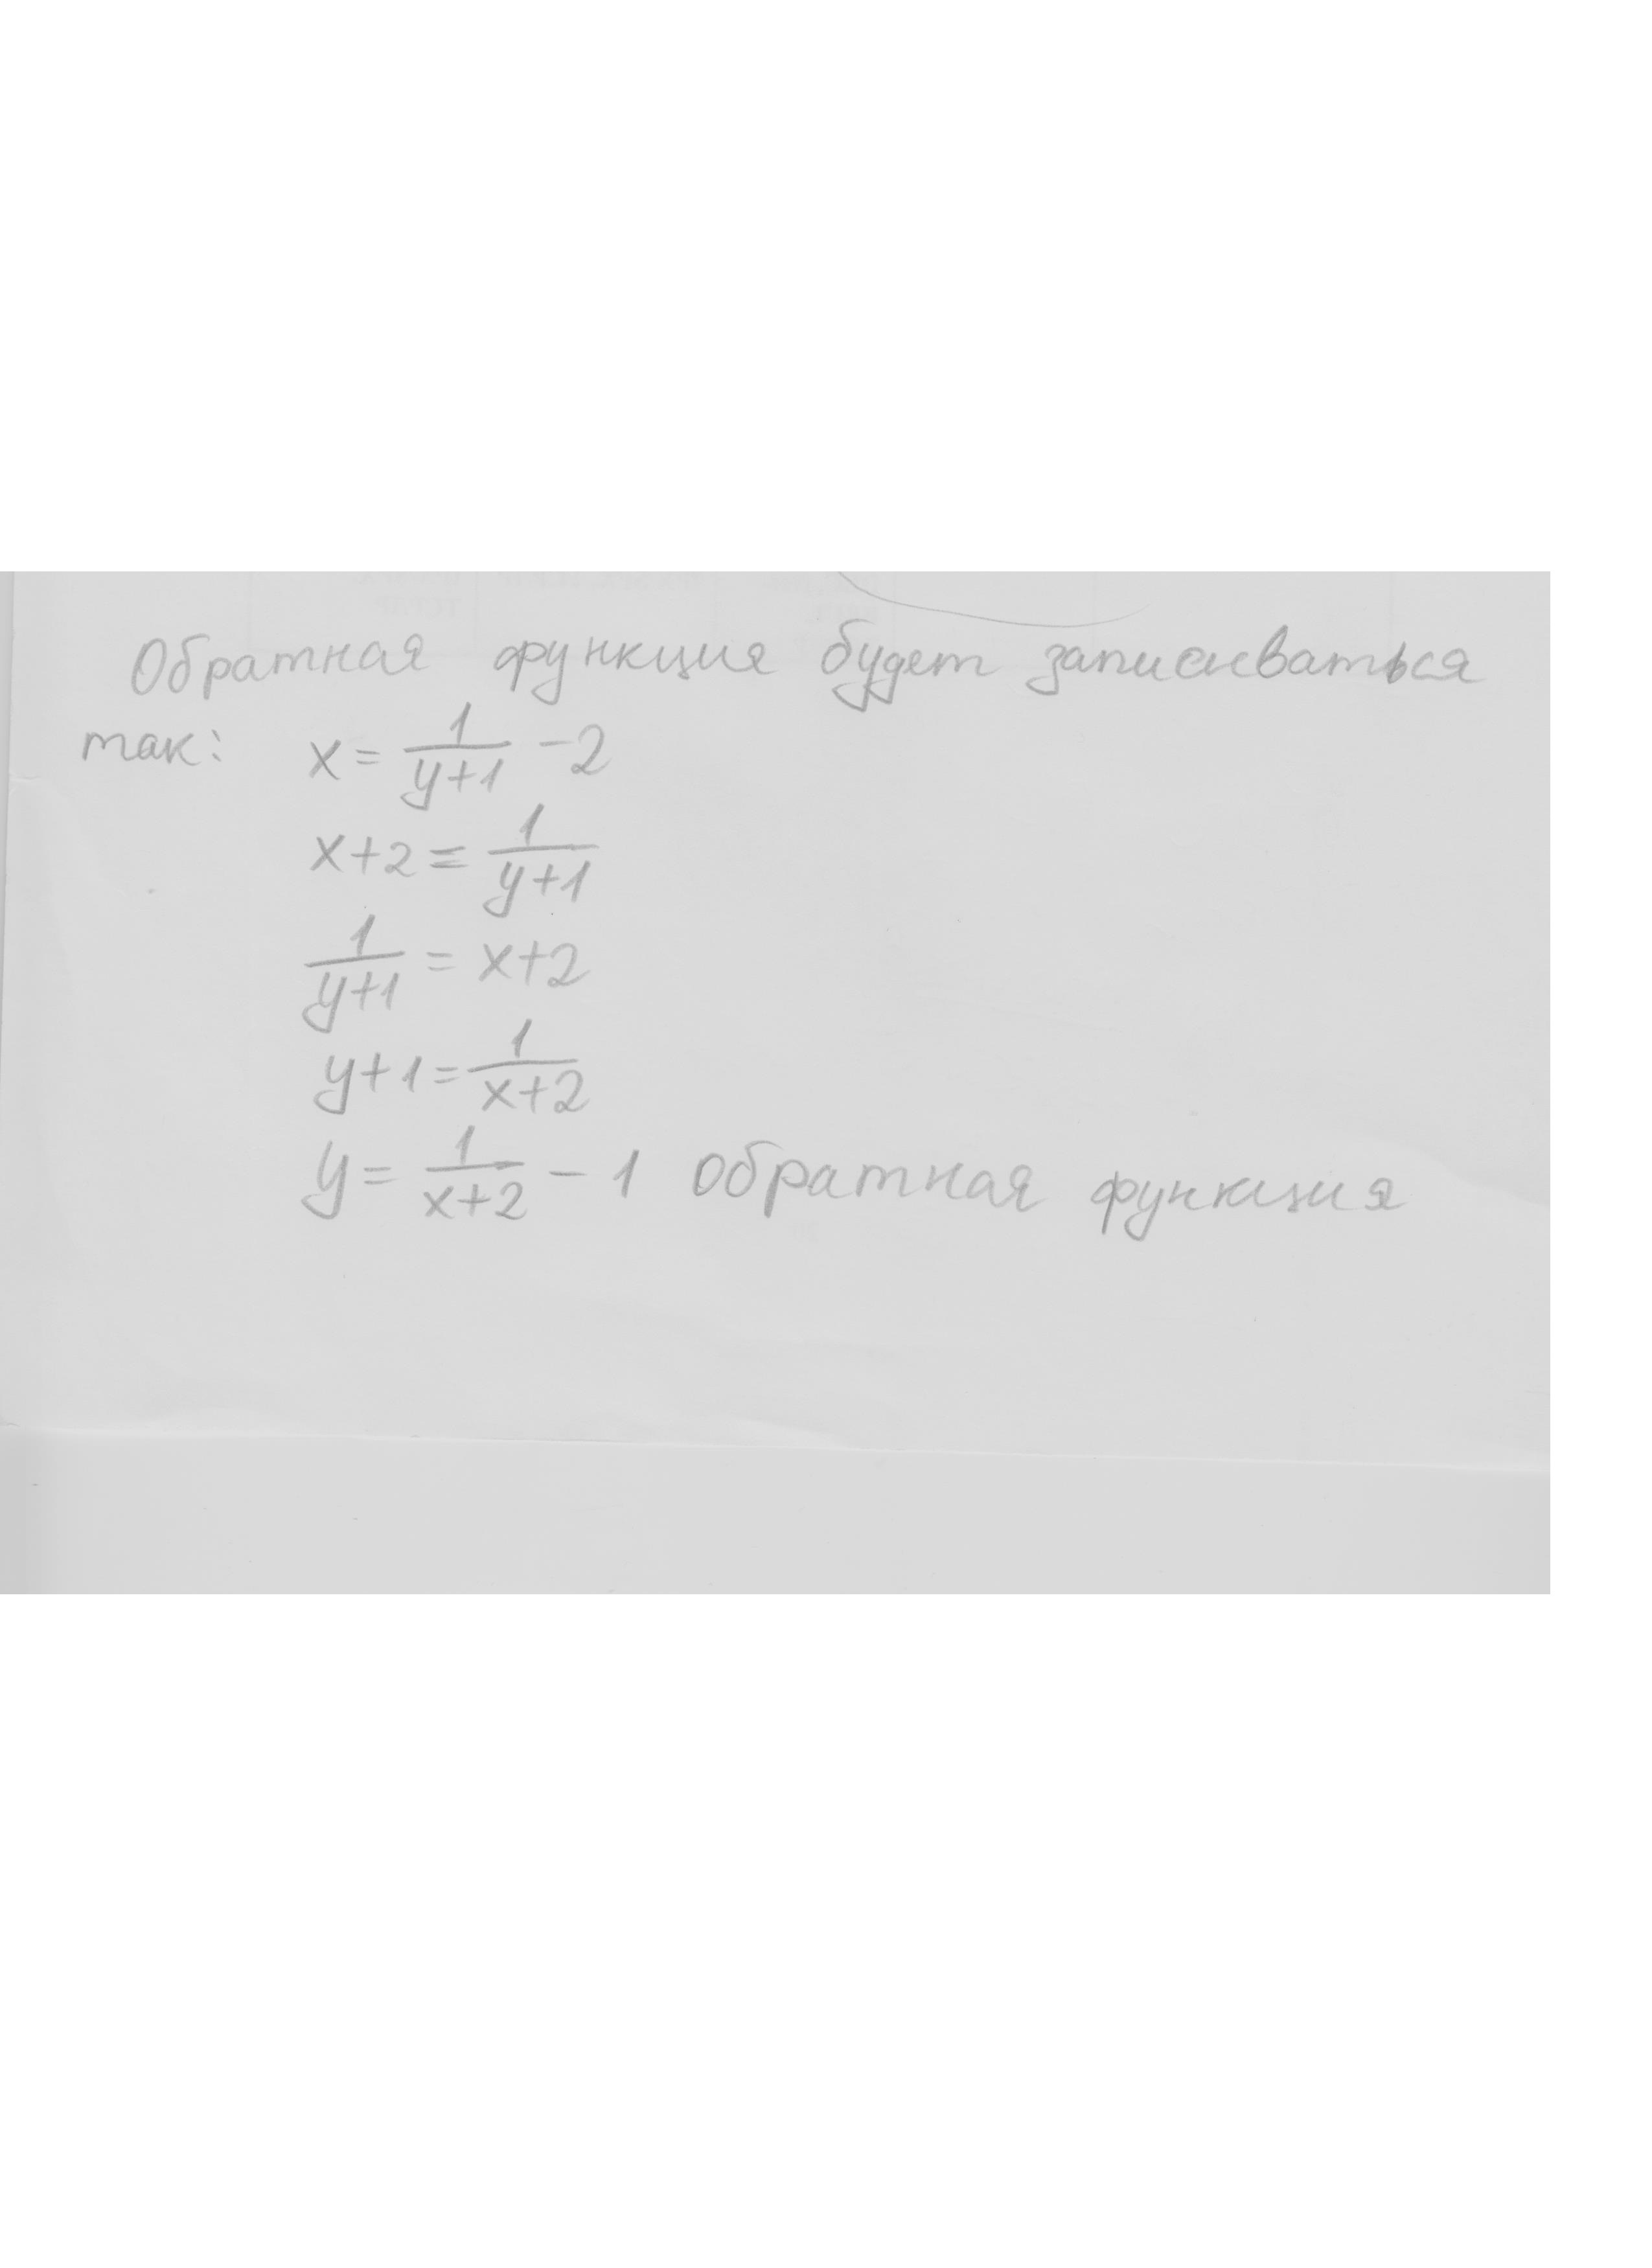 Обратная функция будет записываться
так: x = 1/(y+1) - 2
x+2 = 1/(y+1)
1/(y+1) = x+2
y+1 = 1/(x+2)
y = 1/(x+2) - 1 обратная функция